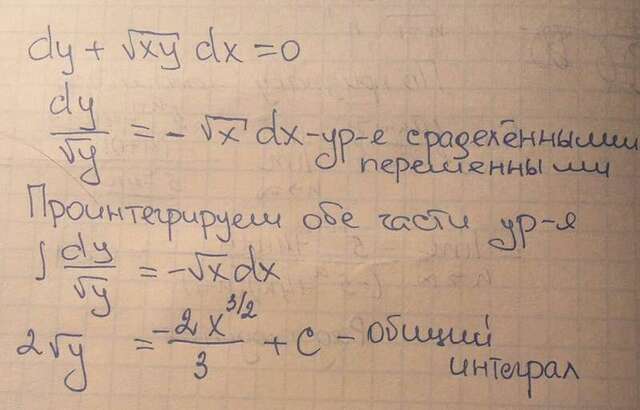 dy + √xy dx = 0
dy/√y = - √x dx - ур-е с разделёнными
переменными
Проинтегрируем обе части ур-я
∫ dy/√y = -√x dx
2√y = -2x^3/2 / 3 + C - общий
интеграл